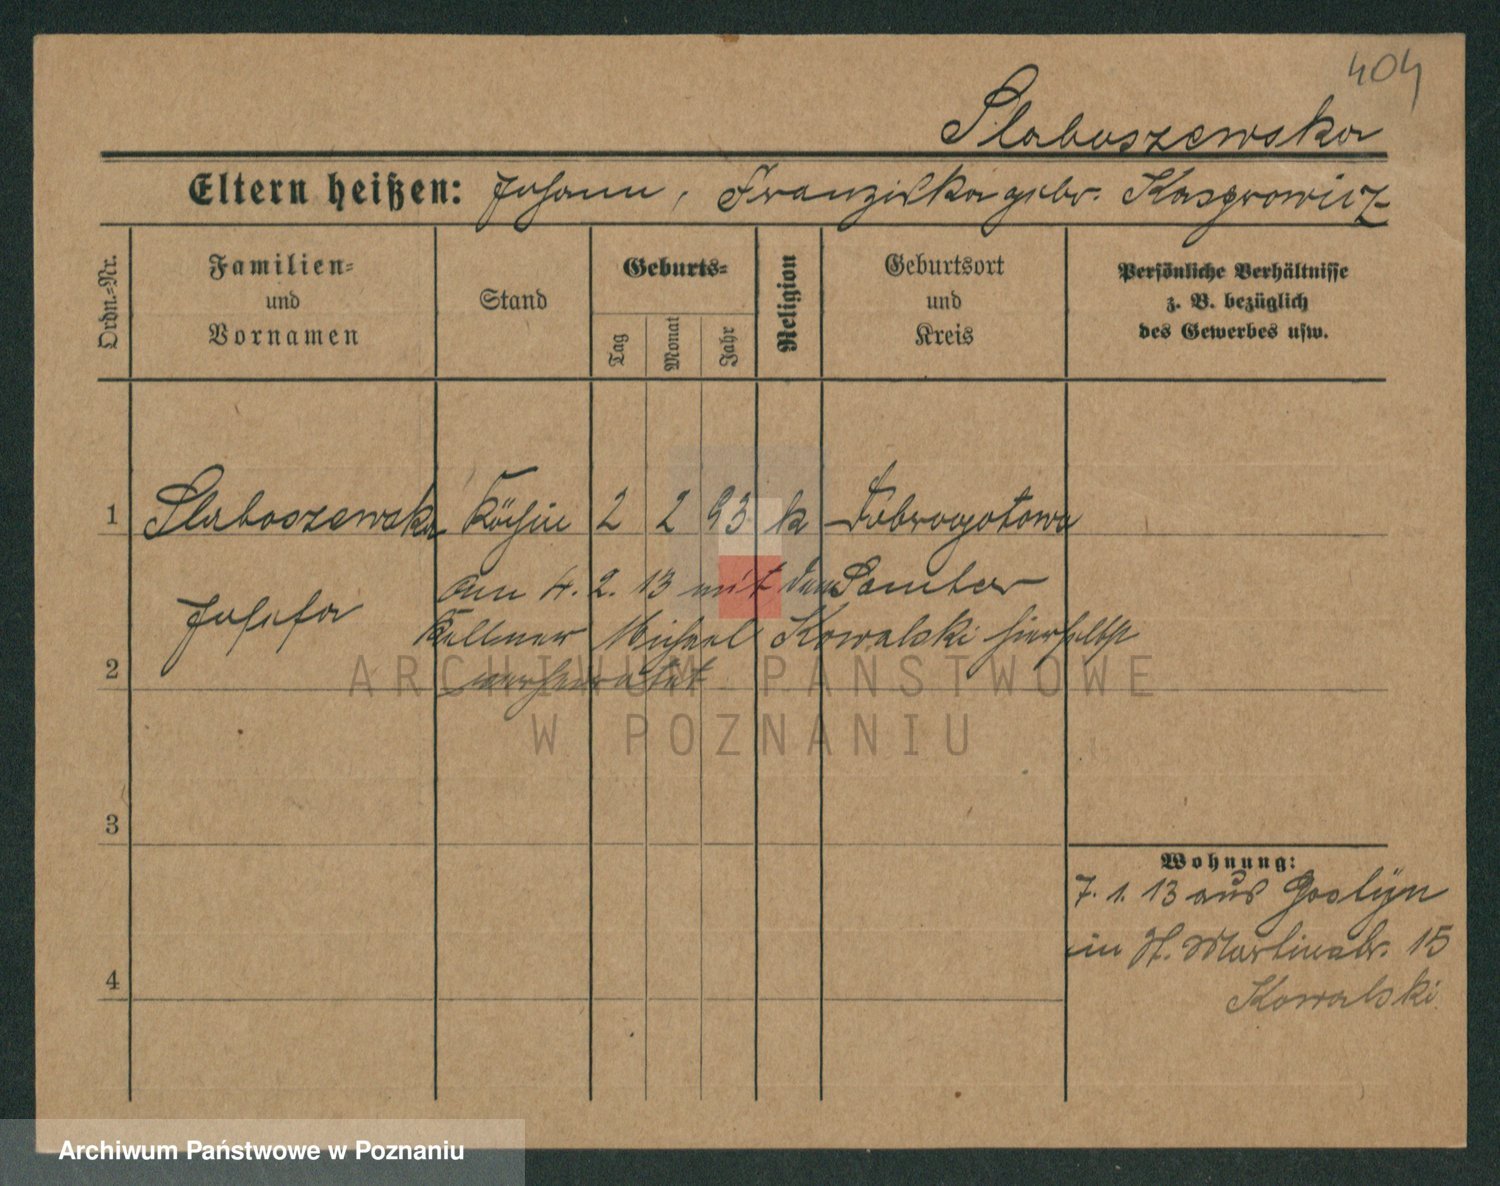 404
Slaboszewska
Eltern heißen: Johann, Franziska gebr. Kasprowicz
Ordn.-Nr.
Familien=
und
Vornamen
Stand
Geburts=
Tag
Monat
Jahr
Religion
Geburtsort
und
Kreis
Persönliche Verhältnisse
z. B. bezüglich
des Gewerbes usw.
1 Slaboszewska Köchin 2 2 93 k Dobrogotowo
Josefa
am 4. 2. 13 mit dem Samter
Kellner Michael Kowalski hierselbst
verheiratet
2
3
4
Wohnung:
7. 1. 13 aus Goslyn
in St. Martinstr. 15
Kowalski
ARCHIWUM PAŃSTWOWE
W POZNANIU
Archiwum Państwowe w Poznaniu